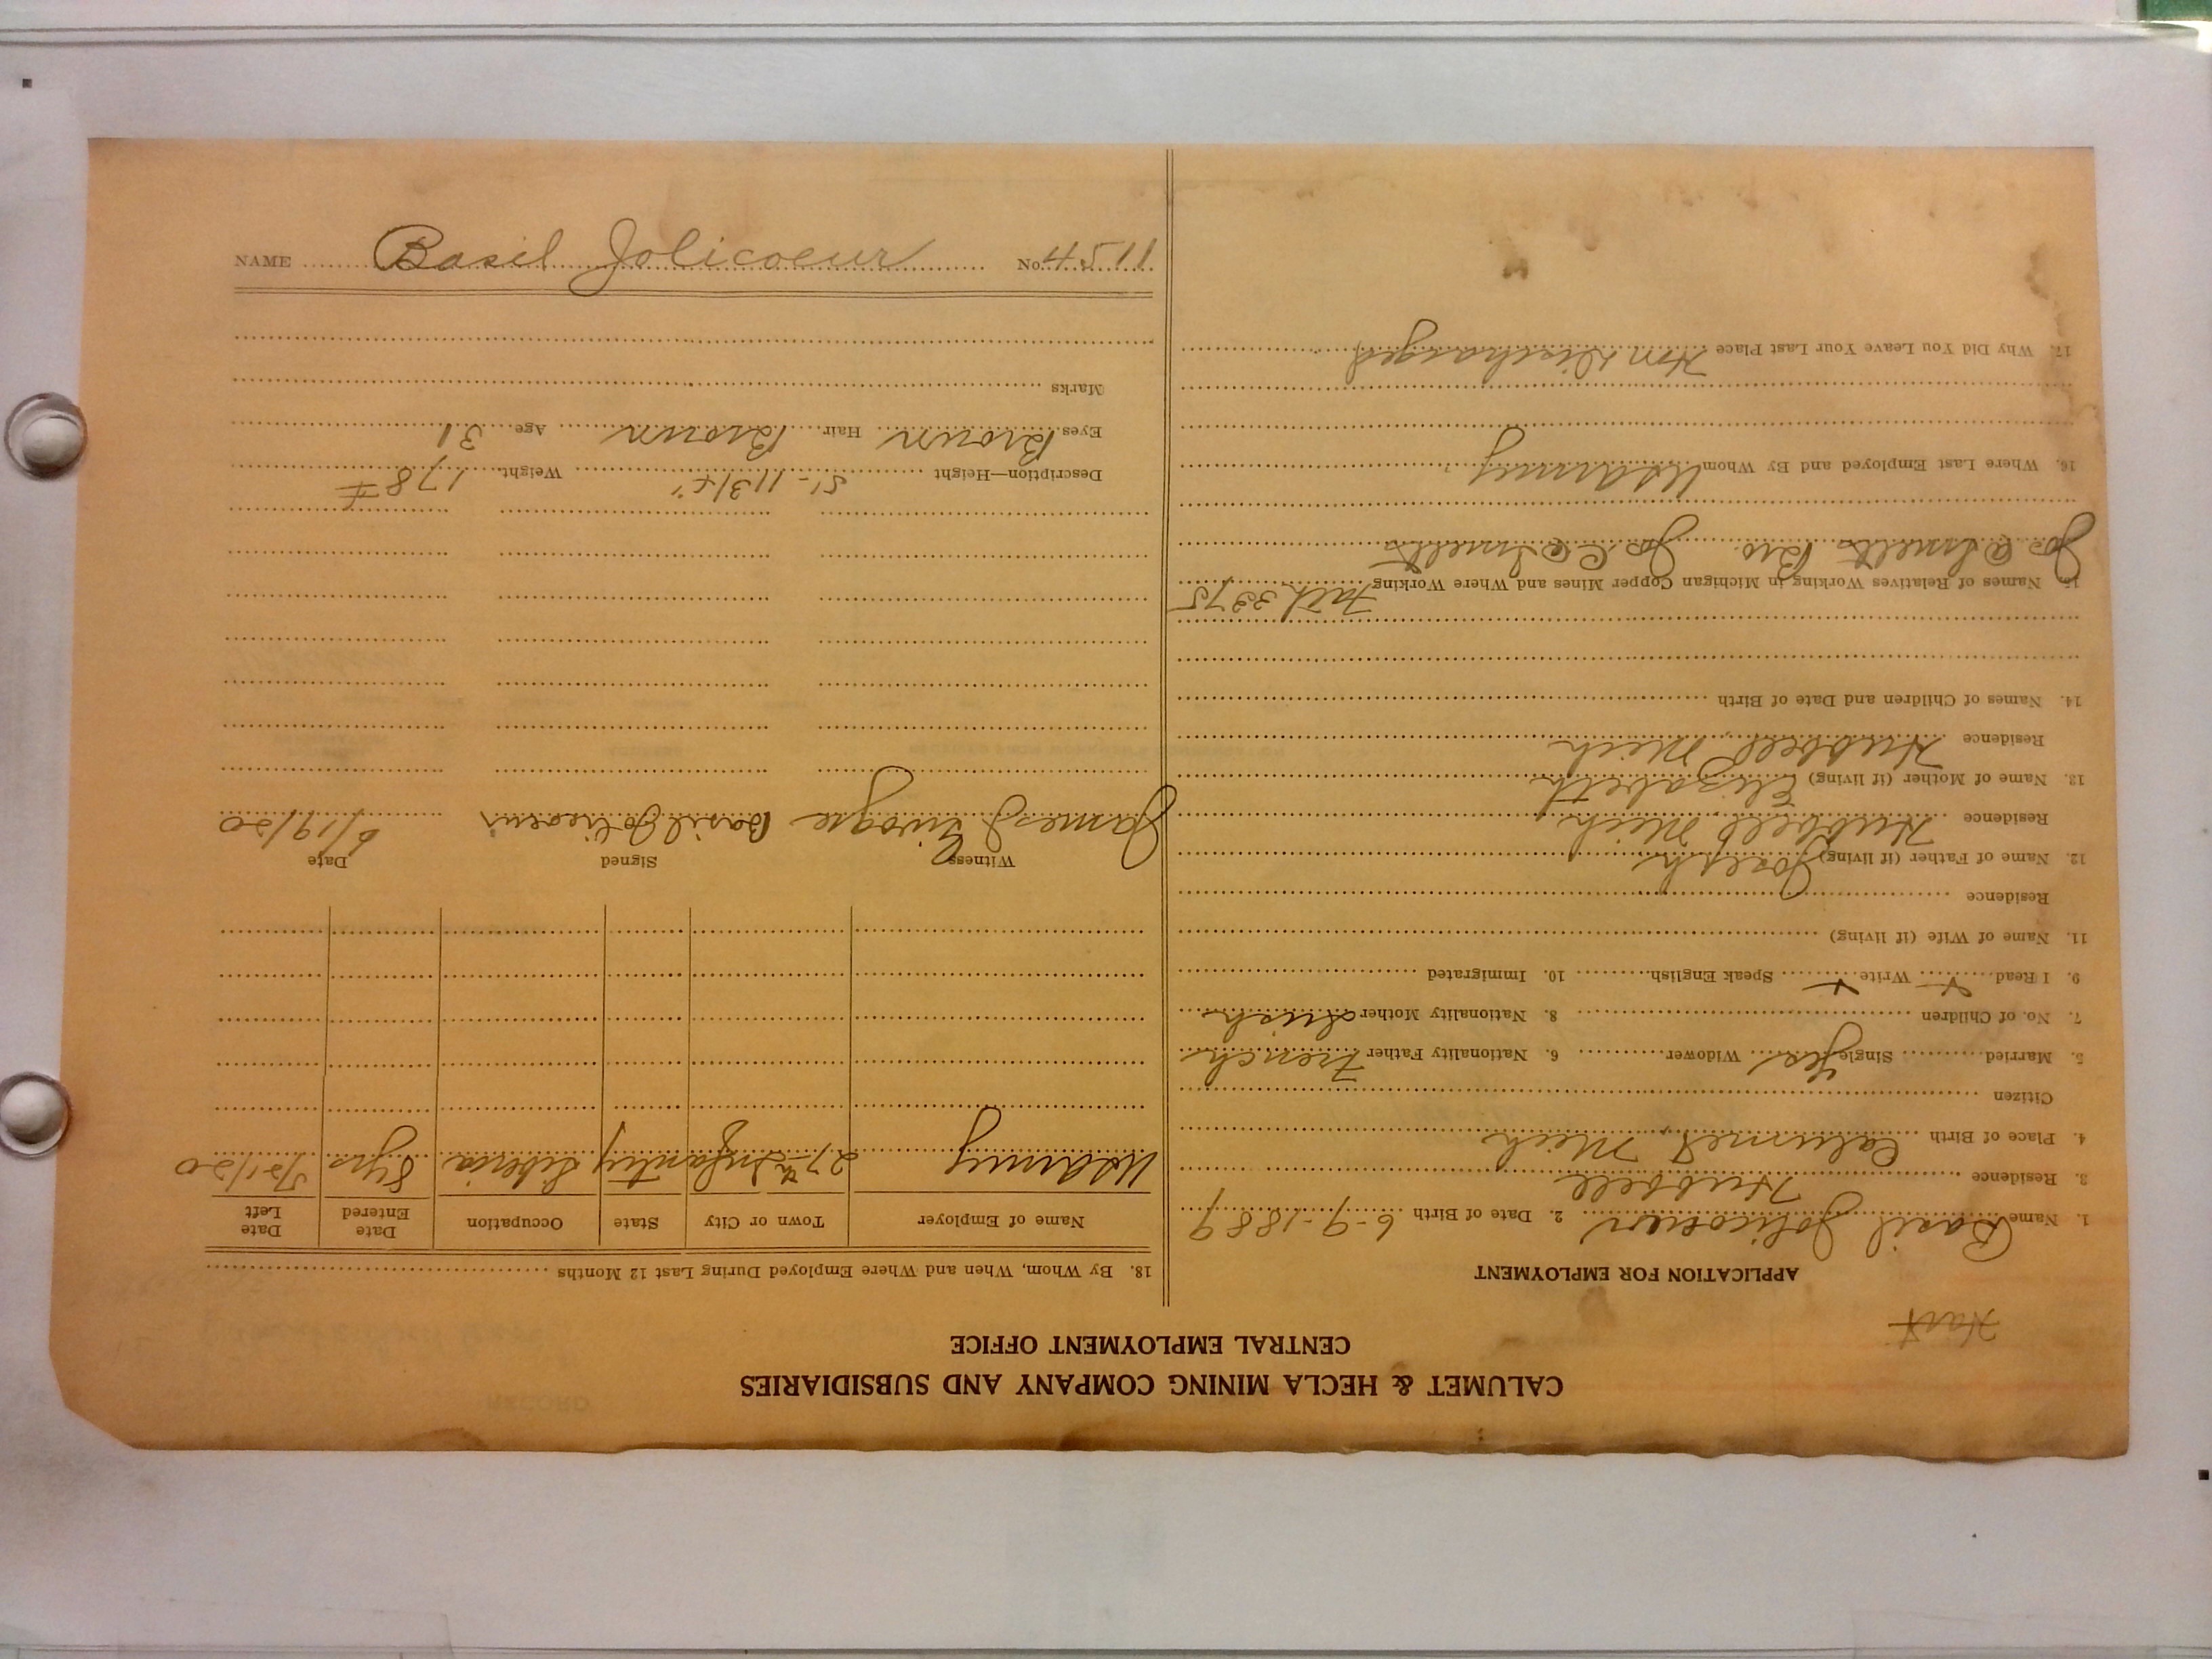 CALUMET & HECLA MINING COMPANY AND SUBSIDIARIES
CENTRAL EMPLOYMENT OFFICE
APPLICATION FOR EMPLOYMENT
1. Name Basil Jolicoeur 2. Date of Birth 6-9-1889
3. Residence Hubbell
4. Place of Birth Calumet, Mich
Citizen
5. Married Single Yes Widower 6. Nationality Father French
7. No. of Children 8. Nationality Mother Irish
9. I Read x Write x Speak English 10. Immigrated
11. Name of Wife (if living)
Residence
12. Name of Father (if living) Joseph
Residence Hubbell, Mich
13. Name of Mother (if living) Elizabeth
Residence Hubbell, Mich
14. Names of Children and Date of Birth
15. Names of Relatives Working in Michigan Copper Mines and Where Working Fath 3375
Jos @ Smelts Bro. Jos C @ Smelts
16. Where Last Employed and By Whom US Army
17. Why Did You Leave Your Last Place Hon Discharged
18. By Whom, When and Where Employed During Last 12 Months
Name of Employer Town or City State Occupation Date Entered Date Left
US Army 27th Infantry Siberia 8 yrs 5/21/20
Witness Signed Date
James J Basil Jolicoeur 6/19/20
Description—Height 5'-11 3/4" Weight 178 #
Eyes Brown Hair Brown Age 31
Marks
NAME Basil Jolicoeur No. 4511